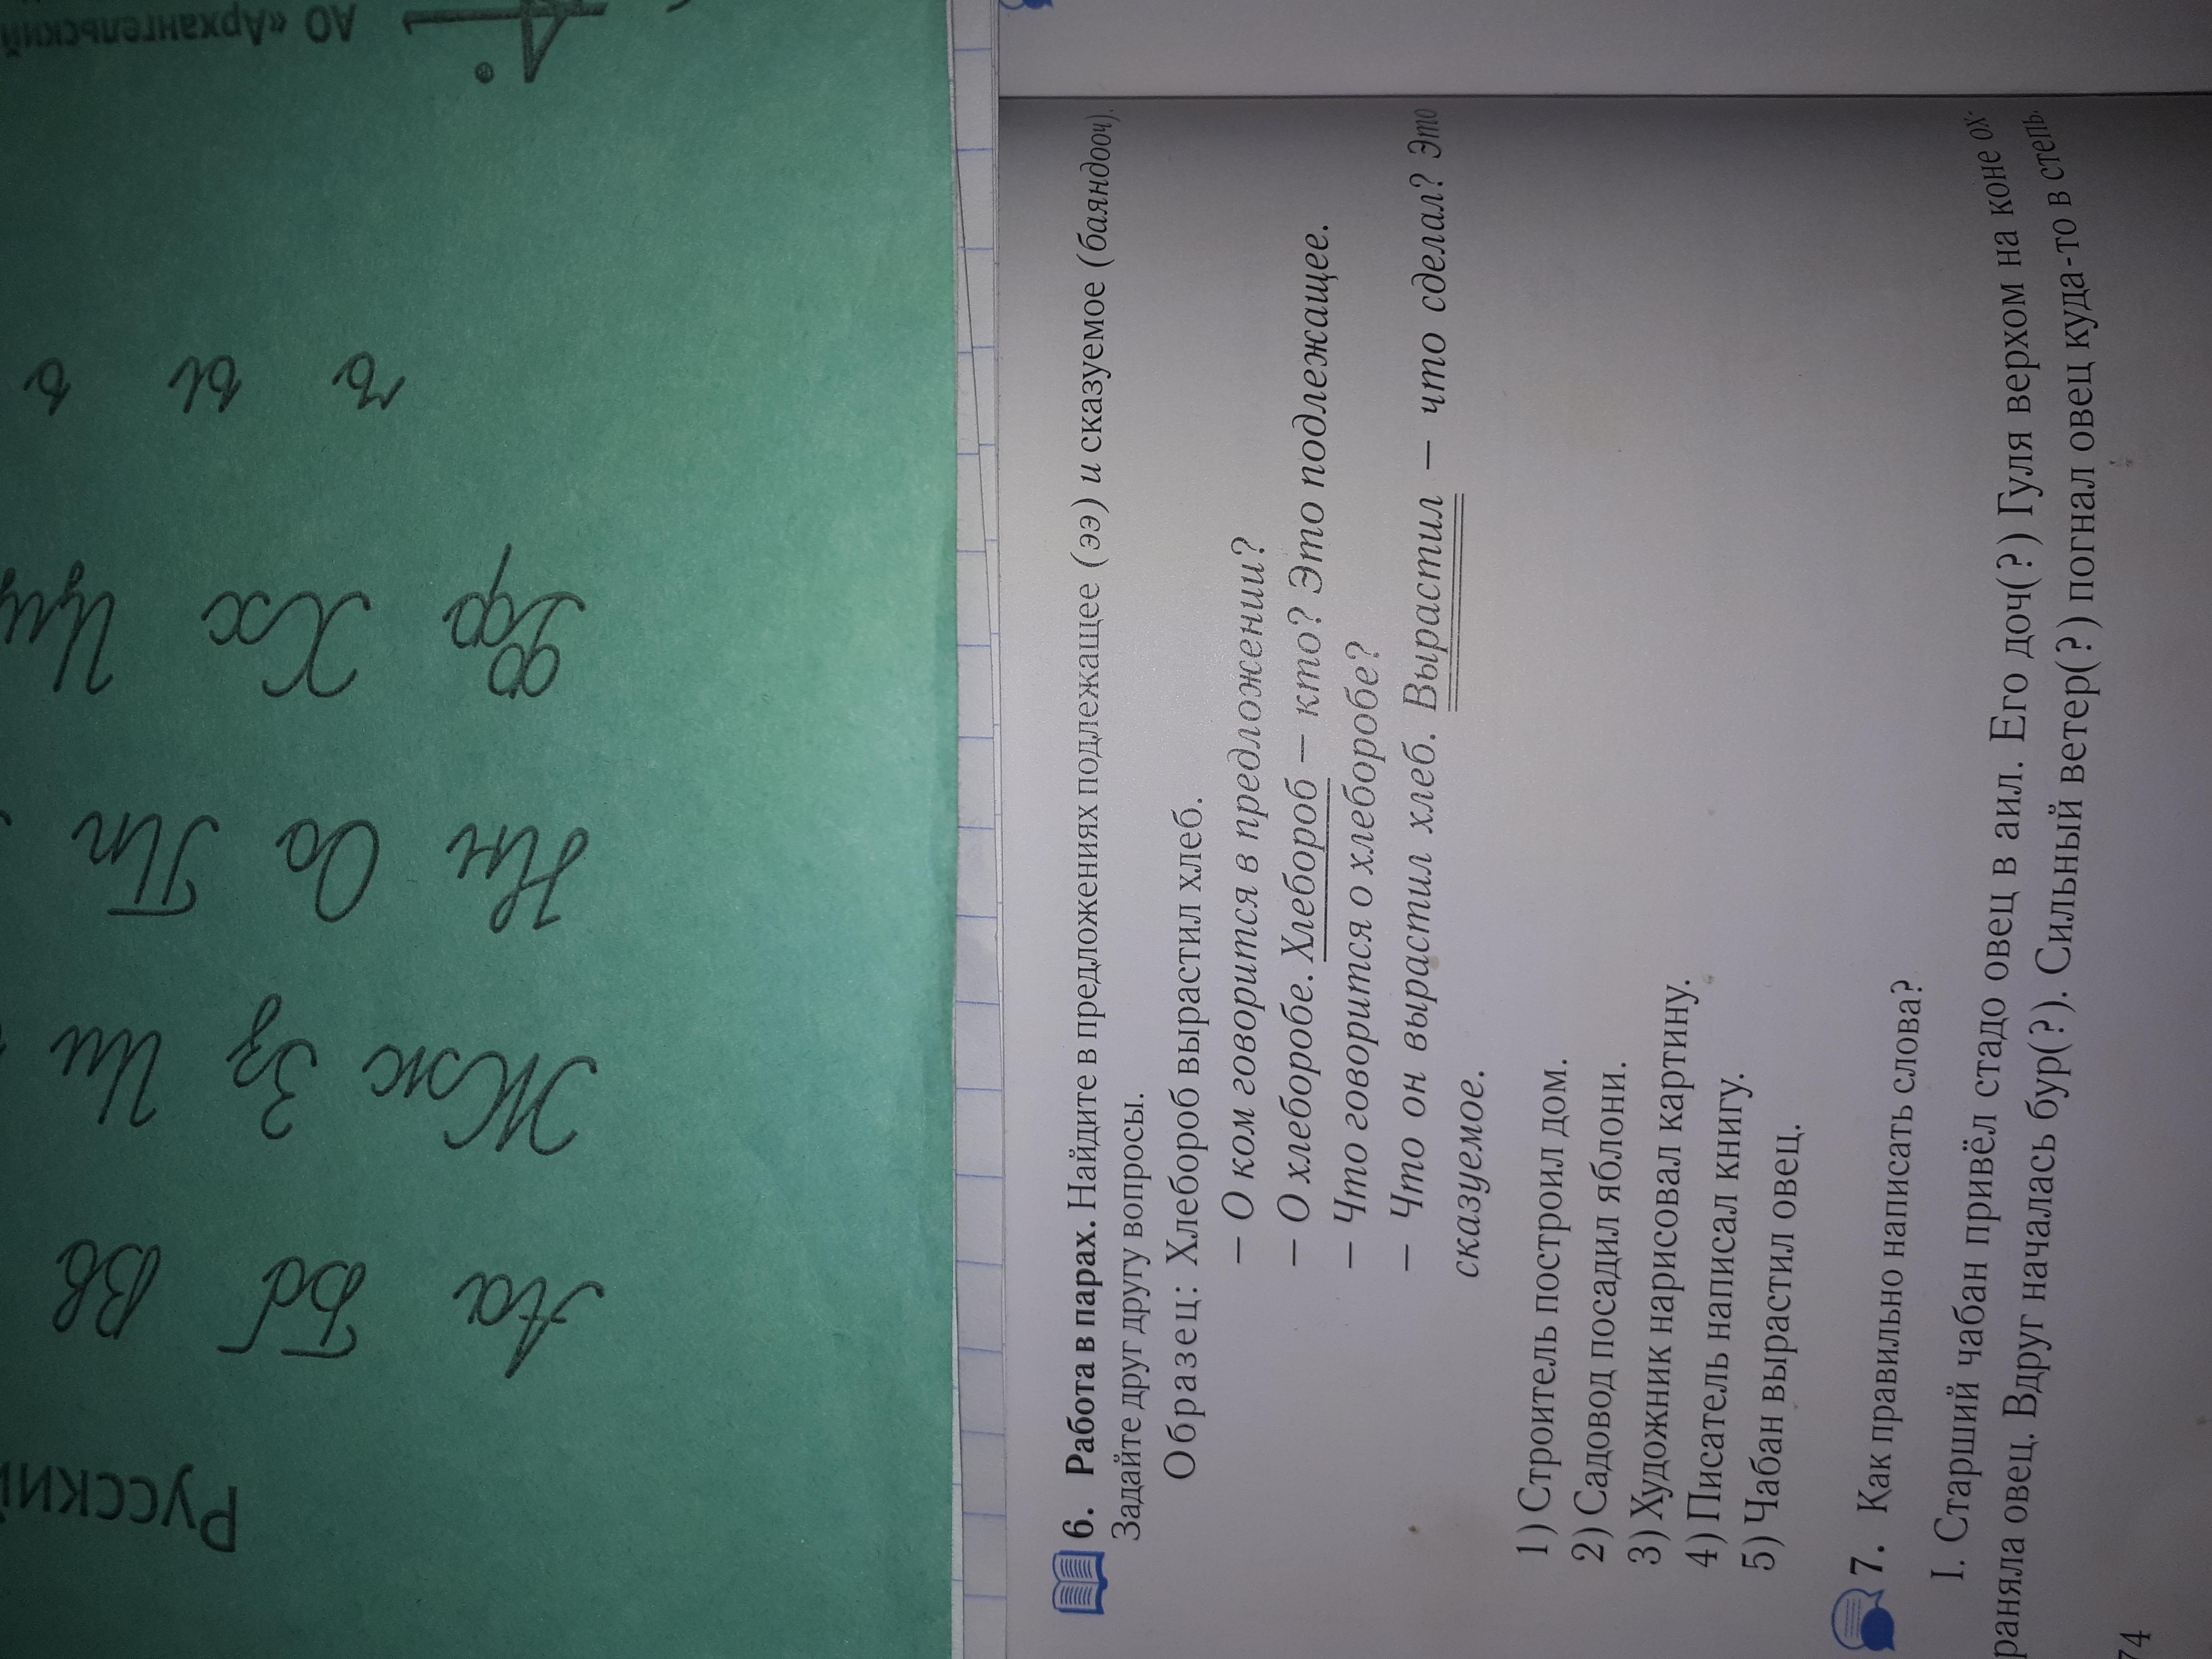 6. Работа в парах. Найдите в предложениях подлежащее (ээ) и сказуемое (баяндооч).
Задайте друг другу вопросы.
Образец: Хлебороб вырастил хлеб.
– О ком говорится в предложении?
– О хлеборобе. Хлебороб – кто? Это подлежащее.
– Что говорится о хлеборобе?
– Что он вырастил хлеб. Вырастил – что сделал? Это
сказуемое.
1) Строитель построил дом.
2) Садовод посадил яблони.
3) Художник нарисовал картину.
4) Писатель написал книгу.
5) Чабан вырастил овец.
7. Как правильно написать слова?
I. Старший чабан привёл стадо овец в аил. Его доч(?) Гуля верхом на коне ох-
раняла овец. Вдруг началась бур(?). Сильный ветер(?) погнал овец куда-то в степь.
74
АО «Архангельский
Аа Жж Нн Фф
Бб Зз Оо Хх ъ
Вв Ии Пп Цц ы
ь